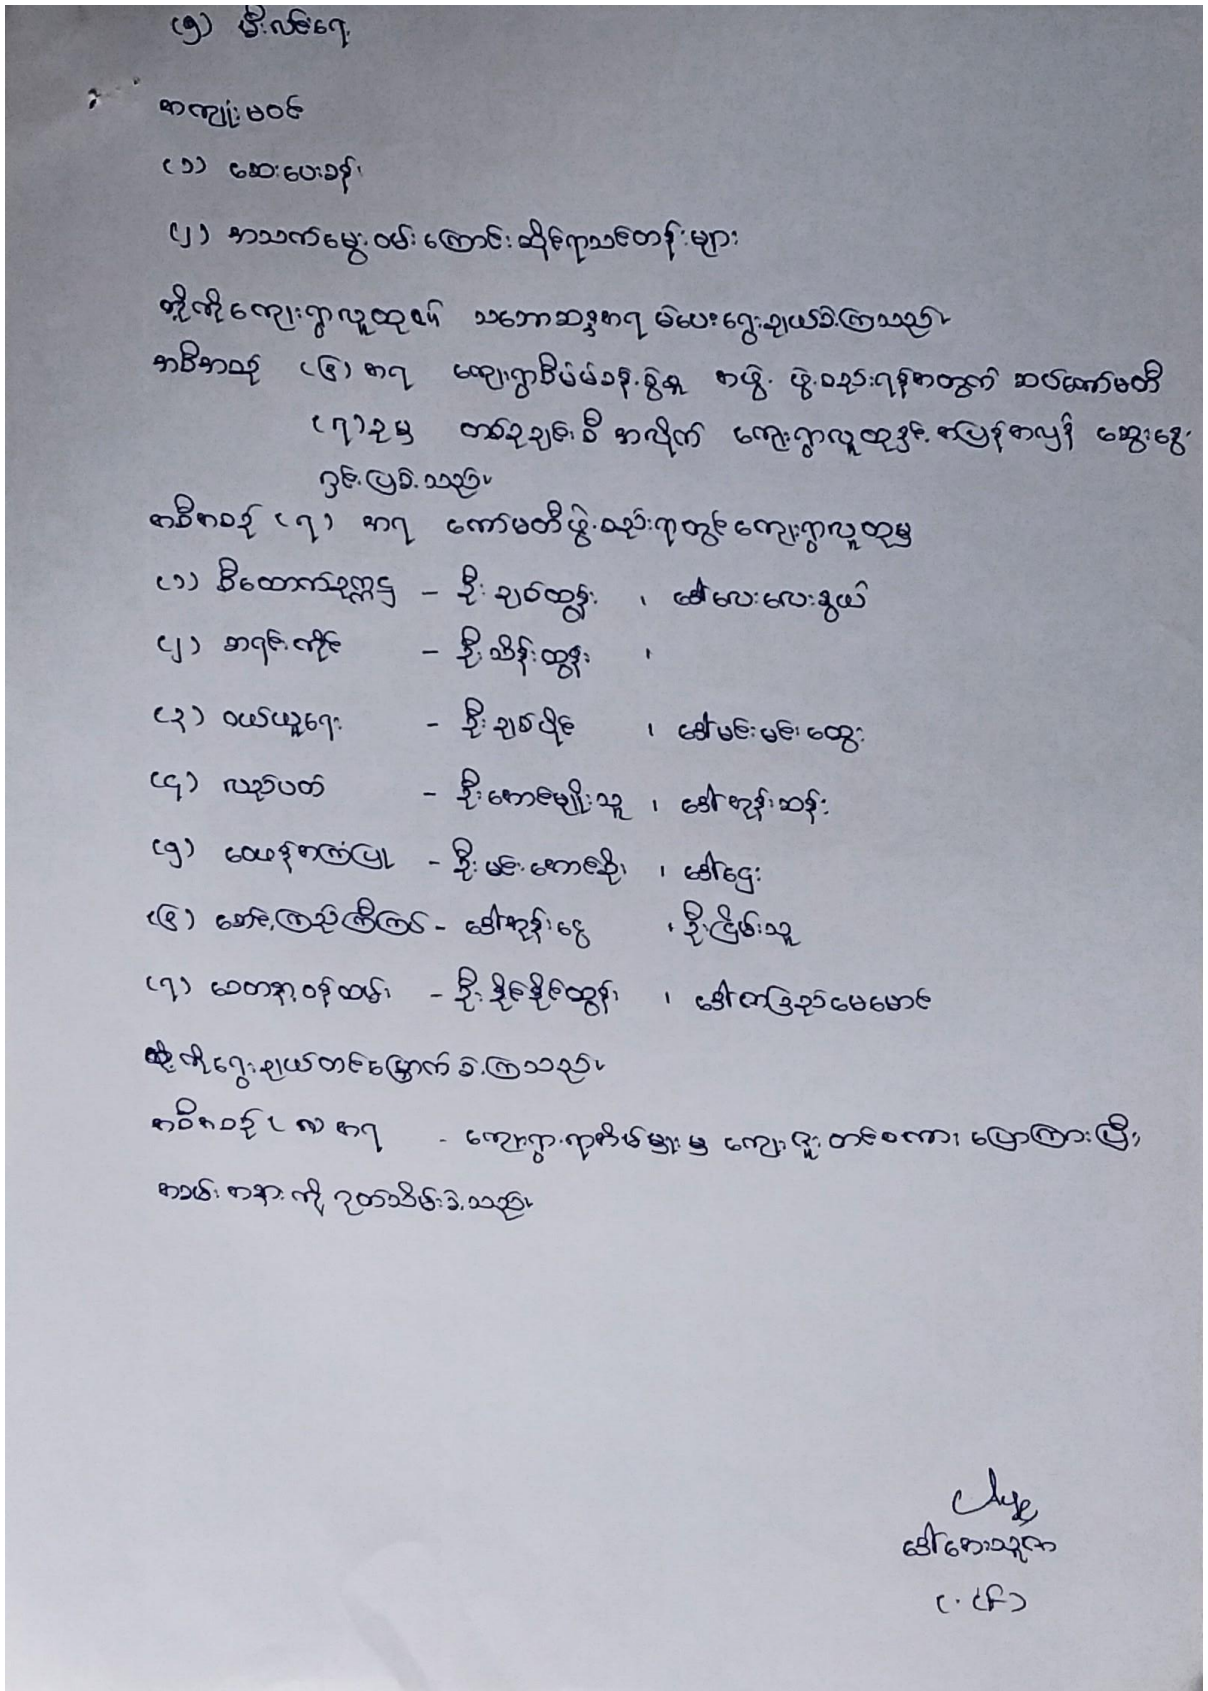 (၅) မီးလင်းရေး
အကျုံးမဝင်
(၁) ဆေးပေးခန်း
(၂) အသက်မွေးဝမ်းကြောင်းဆိုင်ရာသင်တန်းများ
တို့ကိုကျေးရွာလူထုမှ သဘောဆန္ဒအရ မဲပေးရွေးချယ်ခဲ့ကြသည်။
အစီအစဉ် (၆) အရ ကျေးရွာစီမံခန့်ခွဲမှု အဖွဲ့ ဖွဲ့စည်းရန်အတွက် ဆပ်ကော်မတီ
(၇) ခုမှ တစ်ခုချင်းစီ အလိုက် ကျေးရွာလူထုနှင့် အပြန်အလှန် ဆွေးနွေး
ရှင်းပြခဲ့သည်။
အစီအစဉ် (၇) အရ ကော်မတီဖွဲ့စည်းရာတွင် ကျေးရွာလူထုမှ
(၁) စီထောက်ဥက္ကဋ္ဌ - ဦးချစ်ထွန်း ၊ ဒေါ်လေးလေးနွယ်
(၂) စာရင်းကိုင် - ဦးသိန်းထွန်း ၊
(၃) ဝယ်ယူရေး - ဦးချစ်ပိုင် ၊ ဒေါ်မင်းမင်းထွေး
(၄) လည်ပတ် - ဦးအောင်မျိုးသူ ၊ ဒေါ်အုန်းဆန်း
(၅) ထောက်ပံ့ - ဦးမင်းအောင်စိုး ၊ ဒေါ်ဌေး
(၆) စောင့်ကြည့်ကြီးကြပ် - ဒေါ်အုန်းငွေ ၊ ဦးငြိမ်းသူ
(၇) စေတနာ့ဝန်ထမ်း - ဦးနိုင်နိုင်ထွန်း ၊ ဒေါ်ကြည်မေမောင်
တို့ကိုရွေးချယ်တင်မြှောက်ခဲ့ကြသည်။
အစီအစဉ် (၈) အရ - ကျေးရွာရာအိမ်မှူးမှ ကျေးဇူးတင်စကား ပြောကြားပြီး
အခမ်းအနားကို ရုတ်သိမ်းခဲ့သည်။
ဒေါ်အေးသူဇာ
(CF)